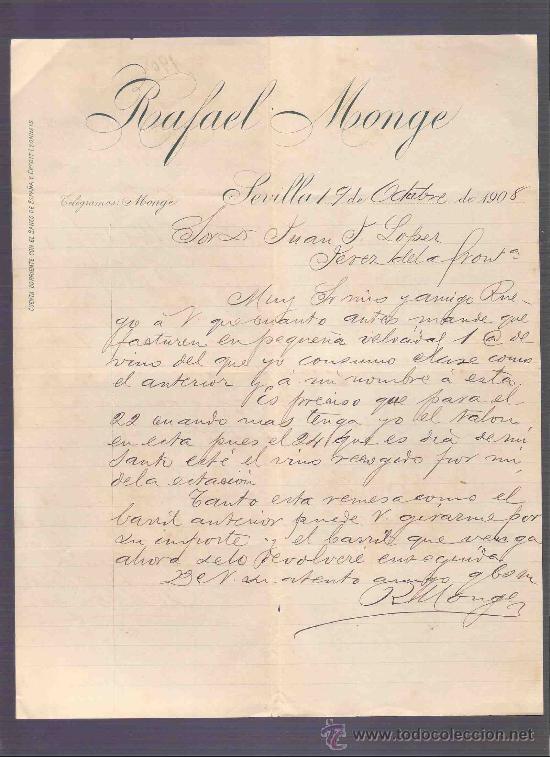 Rafael Monge
CUENTA CORRIENTE CON EL BANCO DE ESPAÑA Y CREDIT LYONNAIS
Telégramas: Monge
Sevilla 19 de Octubre de 1908
Sor Dn Juan J. Lopez
Jerez de la Fronta
Muy Sr mio y amigo Rue-
go á V. que cuanto antes mande que
facturen en pequeña velocidad 1 @ de
vino del que yo consumo clase como
el anterior y á mi nombre á esta.
Es preciso que para el
22 cuando mas tenga yo el talon
en esta pues el 24 que es dia de mi
Santo esté el vino recogido por mi
de la estación
Tanto esta remesa como el
barril anterior puede V. girarme por
su importe y el barril que venga
ahora se lo devolveré enseguida
De V. su atento amigo q b s m
R Monge
www.todocoleccion.net